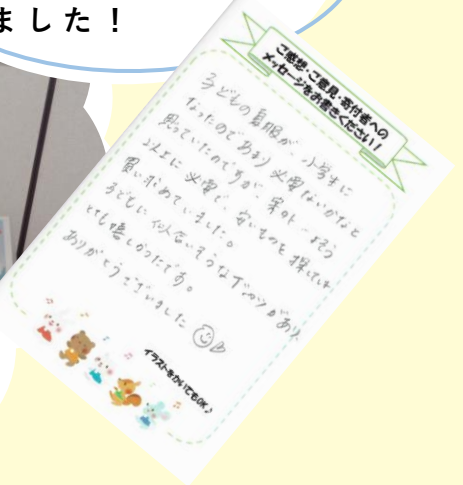 ました！
ご感想・ご意見・寄付者への
メッセージをお書きください！
子どもの夏服が、小学生に
なったのであまり必要ないかなと
思っていたのですが、案外
以上に必要で、安いものを探しては
買い求めていました。
子どもに似合いそうなTシャツがあり、
とても嬉しかったです。
ありがとうございました
イラストをかいてもOK♪